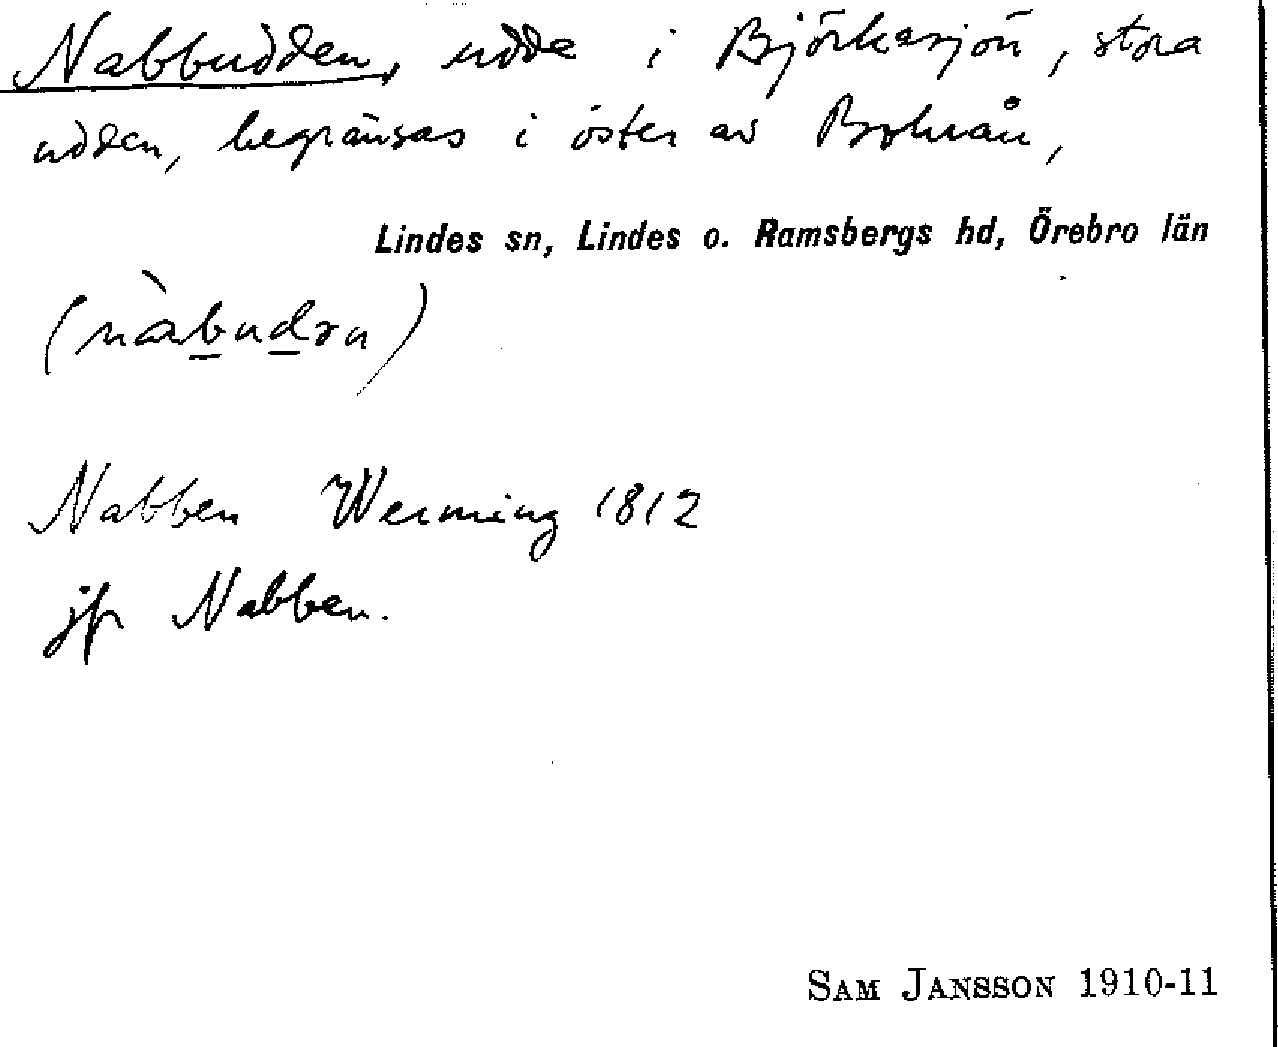 Nabbudden, udde i Björkasjön, stora
udden, begränsas i öster av Bohrån,
Lindes sn, Lindes o. Ramsbergs hd, Örebro län
(nàbudən)
Nabben Werming 1812
jfr Nabben.
SAM JANSSON 1910-11